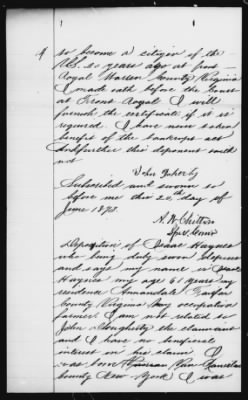 4
to become a citizen of the
U.S. 20 years ago at front
Royal Warren County Virginia
I made oath before the Court
at Front Royal I will
furnish the certificate if it is
required. I have never taken
benefit of the bankrupt act
And further this deponent saith
not
John Doherty
Subscribed and sworn to
before me this 20th day of
June 1873.
A. W. Chilton
Spcl. Comr
Deposition of Isaac Haynes
who being duly sworn deposes
and says my name is Isaac
Haynes my age 61 years my
residence Fairfax
County Virginia my occupation
farmer I am not related to
John Dougherty the claimant
and I have no beneficial
interest in his claim I
was born
County New York I was